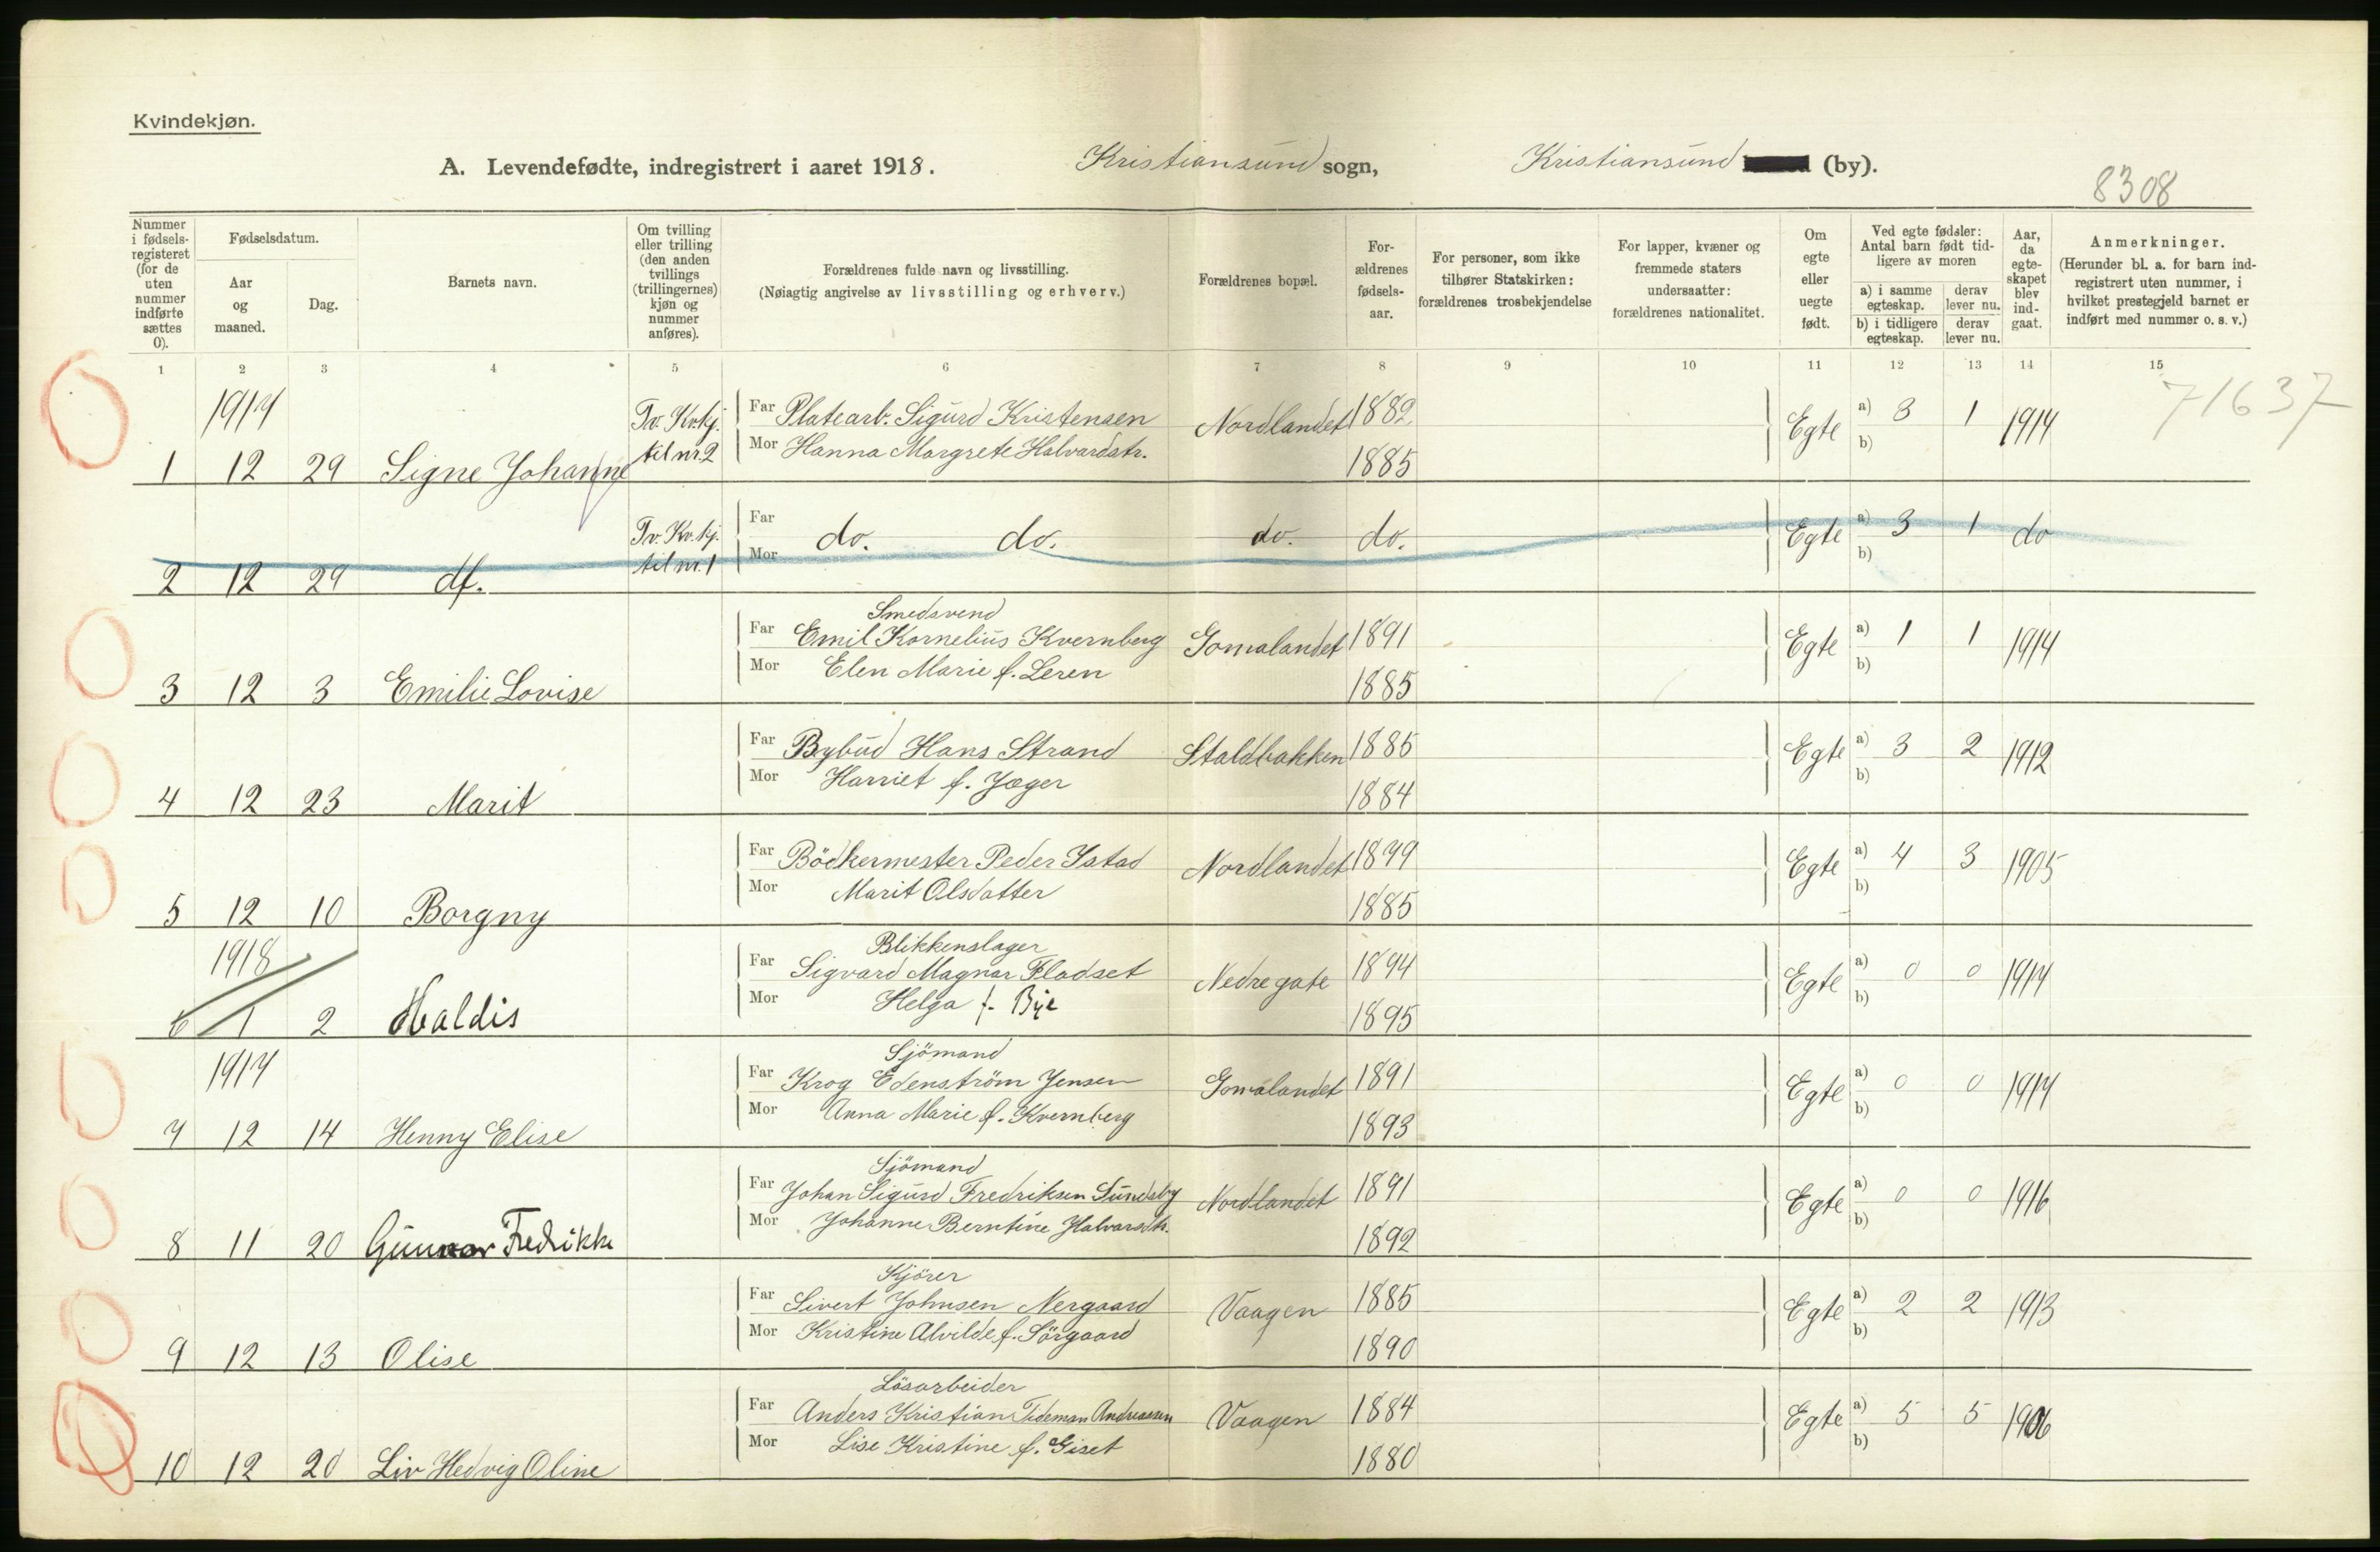 Kvindekjøn.
A. Levendefødte, indregistrert i aaret 1918. Kristiansund sogn, Kristiansund (by).
8308
Nummer i fødsels-registeret (for de uten nummer indførte sættes 0).
Fødselsdatum.
Aar og maaned.
Dag.
Barnets navn.
Om tvilling eller trilling (den anden tvillings (trillingernes) kjøn og nummer anføres).
Forældrenes fulde navn og livsstilling.
(Nøiagtig angivelse av livsstilling og erhverv.)
Forældrenes bopæl.
For-ældrenes fødsels-aar.
For personer, som ikke tilhører Statskirken: forældrenes trosbekjendelse
For lapper, kvæner og fremmede staters undersaatter: forældrenes nationalitet.
Om egte eller uegte født.
Ved egte fødsler: Antal barn født tid-ligere av moren
a) i samme egteskap. derav lever nu.
b) i tidligere egteskap. derav lever nu.
Aar, da egte-skapet blev ind-gaat.
Anmerkninger.
(Herunder bl. a. for barn ind-registrert uten nummer, i hvilket prestegjeld barnet er indført med nummer o. s. v.)
1 2 3 4 5 6 7 8 9 10 11 12 13 14 15
71637
1917
Tv. Kvkj. Far Platearb. Sigurd Kristensen Nordlandet 1882 Egte a) 3 1 1914
til nr. 2 Mor Hanna Margrete Halvardstr. 1885 b)
1 12 29 Signe Johanne
Tv. Kv.kj. Far do. do. do. do. Egte a) 3 1 do
til nr. 1 Mor b)
2 12 29 df.
Smedsvend
Far Emil Kornelius Kvernberg Gomalandet 1891 Egte a) 1 1 1914
Mor Elen Marie f. Leren 1885 b)
3 12 3 Emilie Lovise
Far Bybud Hans Strand Staldbakken 1885 Egte a) 3 2 1912
Mor Harriet f. Jæger 1884 b)
4 12 23 Marit
Far Bödkermester Peder Istad Nordlandet 1879 Egte a) 4 3 1905
Mor Marit Olsdatter 1885 b)
5 12 10 Borgny
1918
Blikkenslager
Far Sigvard Magnar Fladset Nedregate 1894 Egte a) 0 0 1917
Mor Helga f. Bye 1895 b)
6 1 2 Haldis
1917
Sjömand
Far Krog Edenström Jensen Gomalandet 1891 Egte a) 0 0 1917
Mor Anna Marie f. Kvernberg 1893 b)
7 12 14 Henny Elise
Sjömand
Far Johan Sigurd Fredriksen Sundsby Nordlandet 1891 Egte a) 0 0 1916
Mor Johanne Berntine Halvarsdtr. 1892 b)
8 11 20 Gunnor Fredrikke
Kjörer
Far Sivert Johnsen Nergaard Vaagen 1885 Egte a) 2 2 1913
Mor Kristine Alvilde f. Sörgaard 1890 b)
9 12 13 Olise
Lösarbeider
Far Anders Kristian Tideman Andreassen Vaagen 1884 Egte a) 5 5 1906
Mor Lise Kristine f. Giset 1880 b)
10 12 20 Liv Hedvig Oline